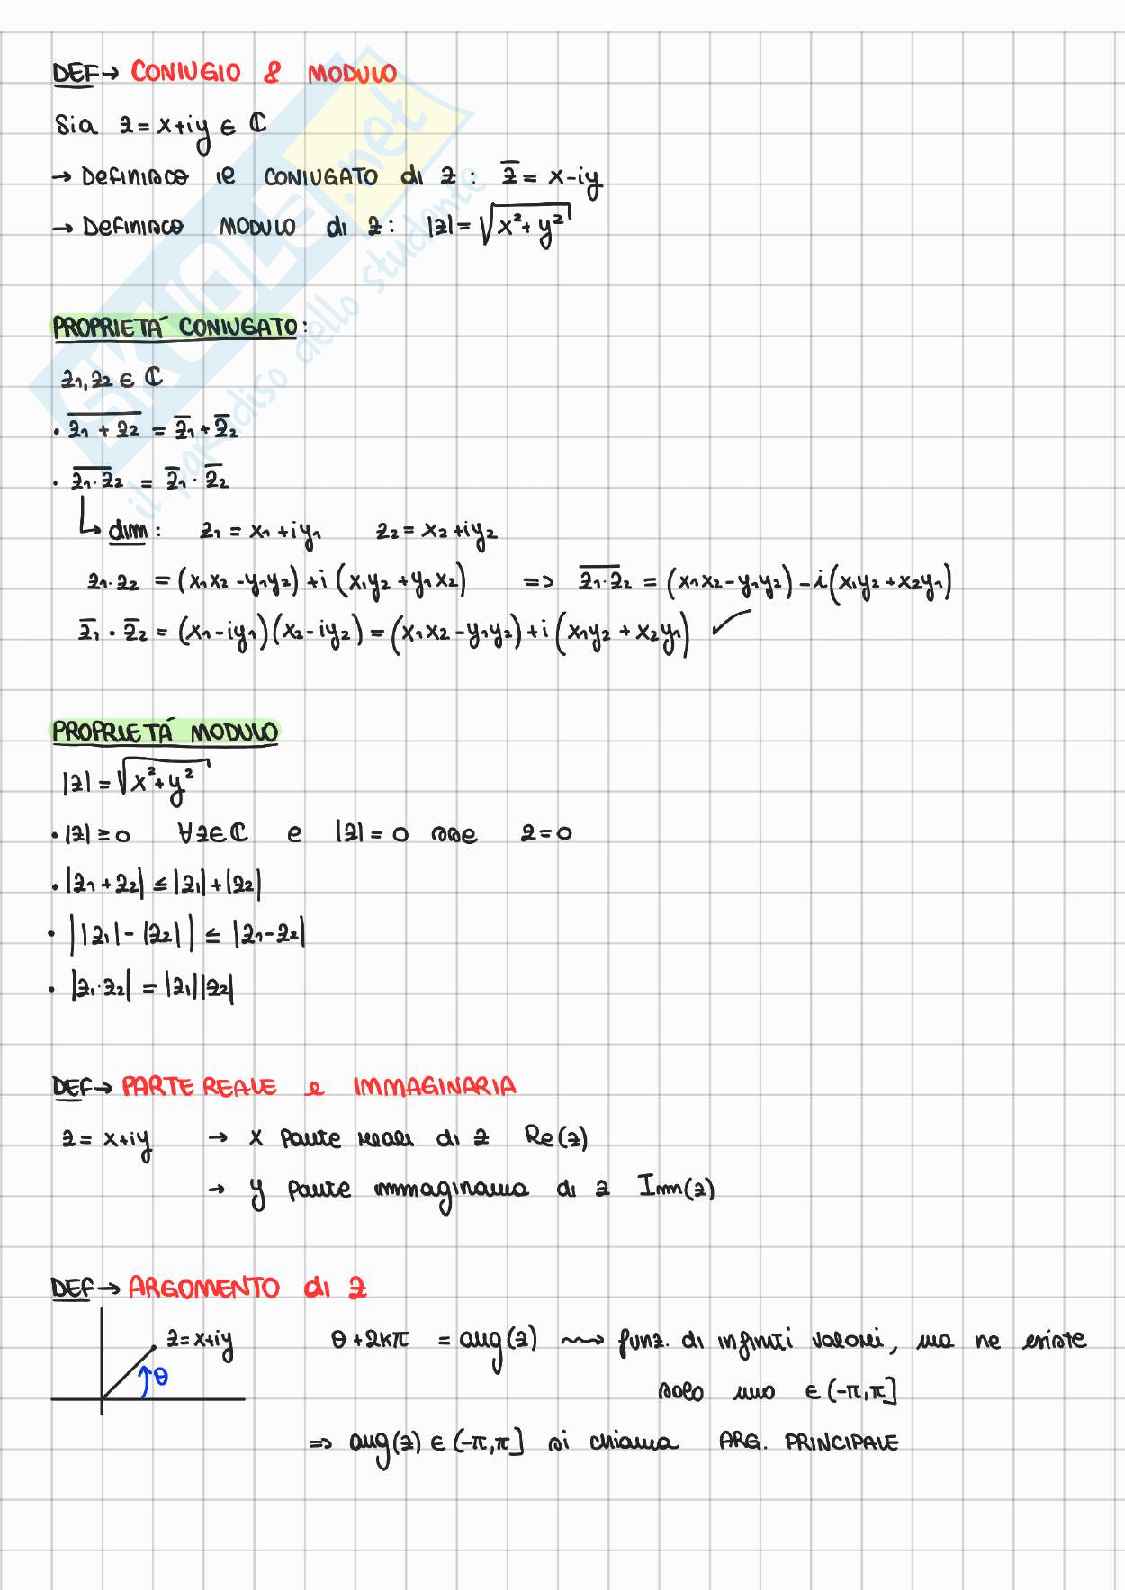 DEF → CONIUGIO & MODULO
Sia z = x+iy ∈ ℂ
→ Definisco il CONIUGATO di z : z̅ = x-iy
→ Definisco MODULO di z : |z| = √(x²+y²)
PROPRIETÀ CONIUGATO:
z₁, z₂ ∈ ℂ
• \overline{z₁ + z₂} = z̅₁ + z̅₂
• \overline{z₁·z₂} = z̅₁ · z̅₂
↳ dim : z₁ = x₁ + iy₁ z₂ = x₂ + iy₂
z₁·z₂ = (x₁x₂ - y₁y₂) + i (x₁y₂ + y₁x₂) => \overline{z₁·z₂} = (x₁x₂ - y₁y₂) - i (x₁y₂ + x₂y₁)
z̅₁ · z̅₂ = (x₁ - iy₁)(x₂ - iy₂) = (x₁x₂ - y₁y₂) + i (x₁y₂ + x₂y₁) ✓
PROPRIETÀ MODULO
|z| = √(x²+y²)
• |z| ≥ 0 ∀z∈ℂ e |z| = 0 sse z = 0
• |z₁ + z₂| ≤ |z₁| + |z₂|
• ||z₁| - |z₂|| ≤ |z₁ - z₂|
• |z₁·z₂| = |z₁||z₂|
DEF → PARTE REALE e IMMAGINARIA
z = x+iy → x parte reale di z Re(z)
→ y parte immaginaria di z Imm(z)
DEF → ARGOMENTO di z
z = x+iy θ + 2kπ = arg(z) ⟿ funz. di infiniti valori, ma ne esiste
θ
solo uno ∈ (-π, π]
=> arg(z) ∈ (-π, π] si chiama ARG. PRINCIPALE
SKUOLA.net
il paradiso dello studente